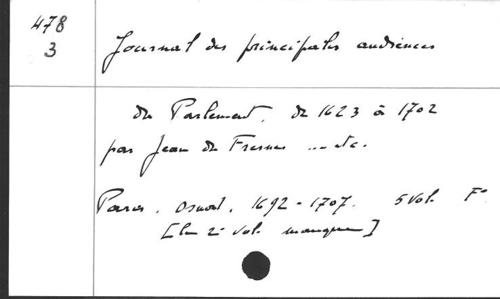 478
3
Journal des principales audiences
du Parlement, de 1623 à 1702
par Jean du Fresne ... etc.
Paris. Osmont. 1692-1707. 5 vol. F°
[le 2e vol. manque]